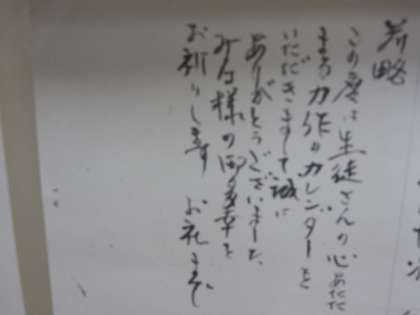 前略
この度は生徒さんの心あたた
まる力作のカレンダーを
いただきまして誠に
ありがとうございました
みな様の御多幸を
お祈りします お礼まで